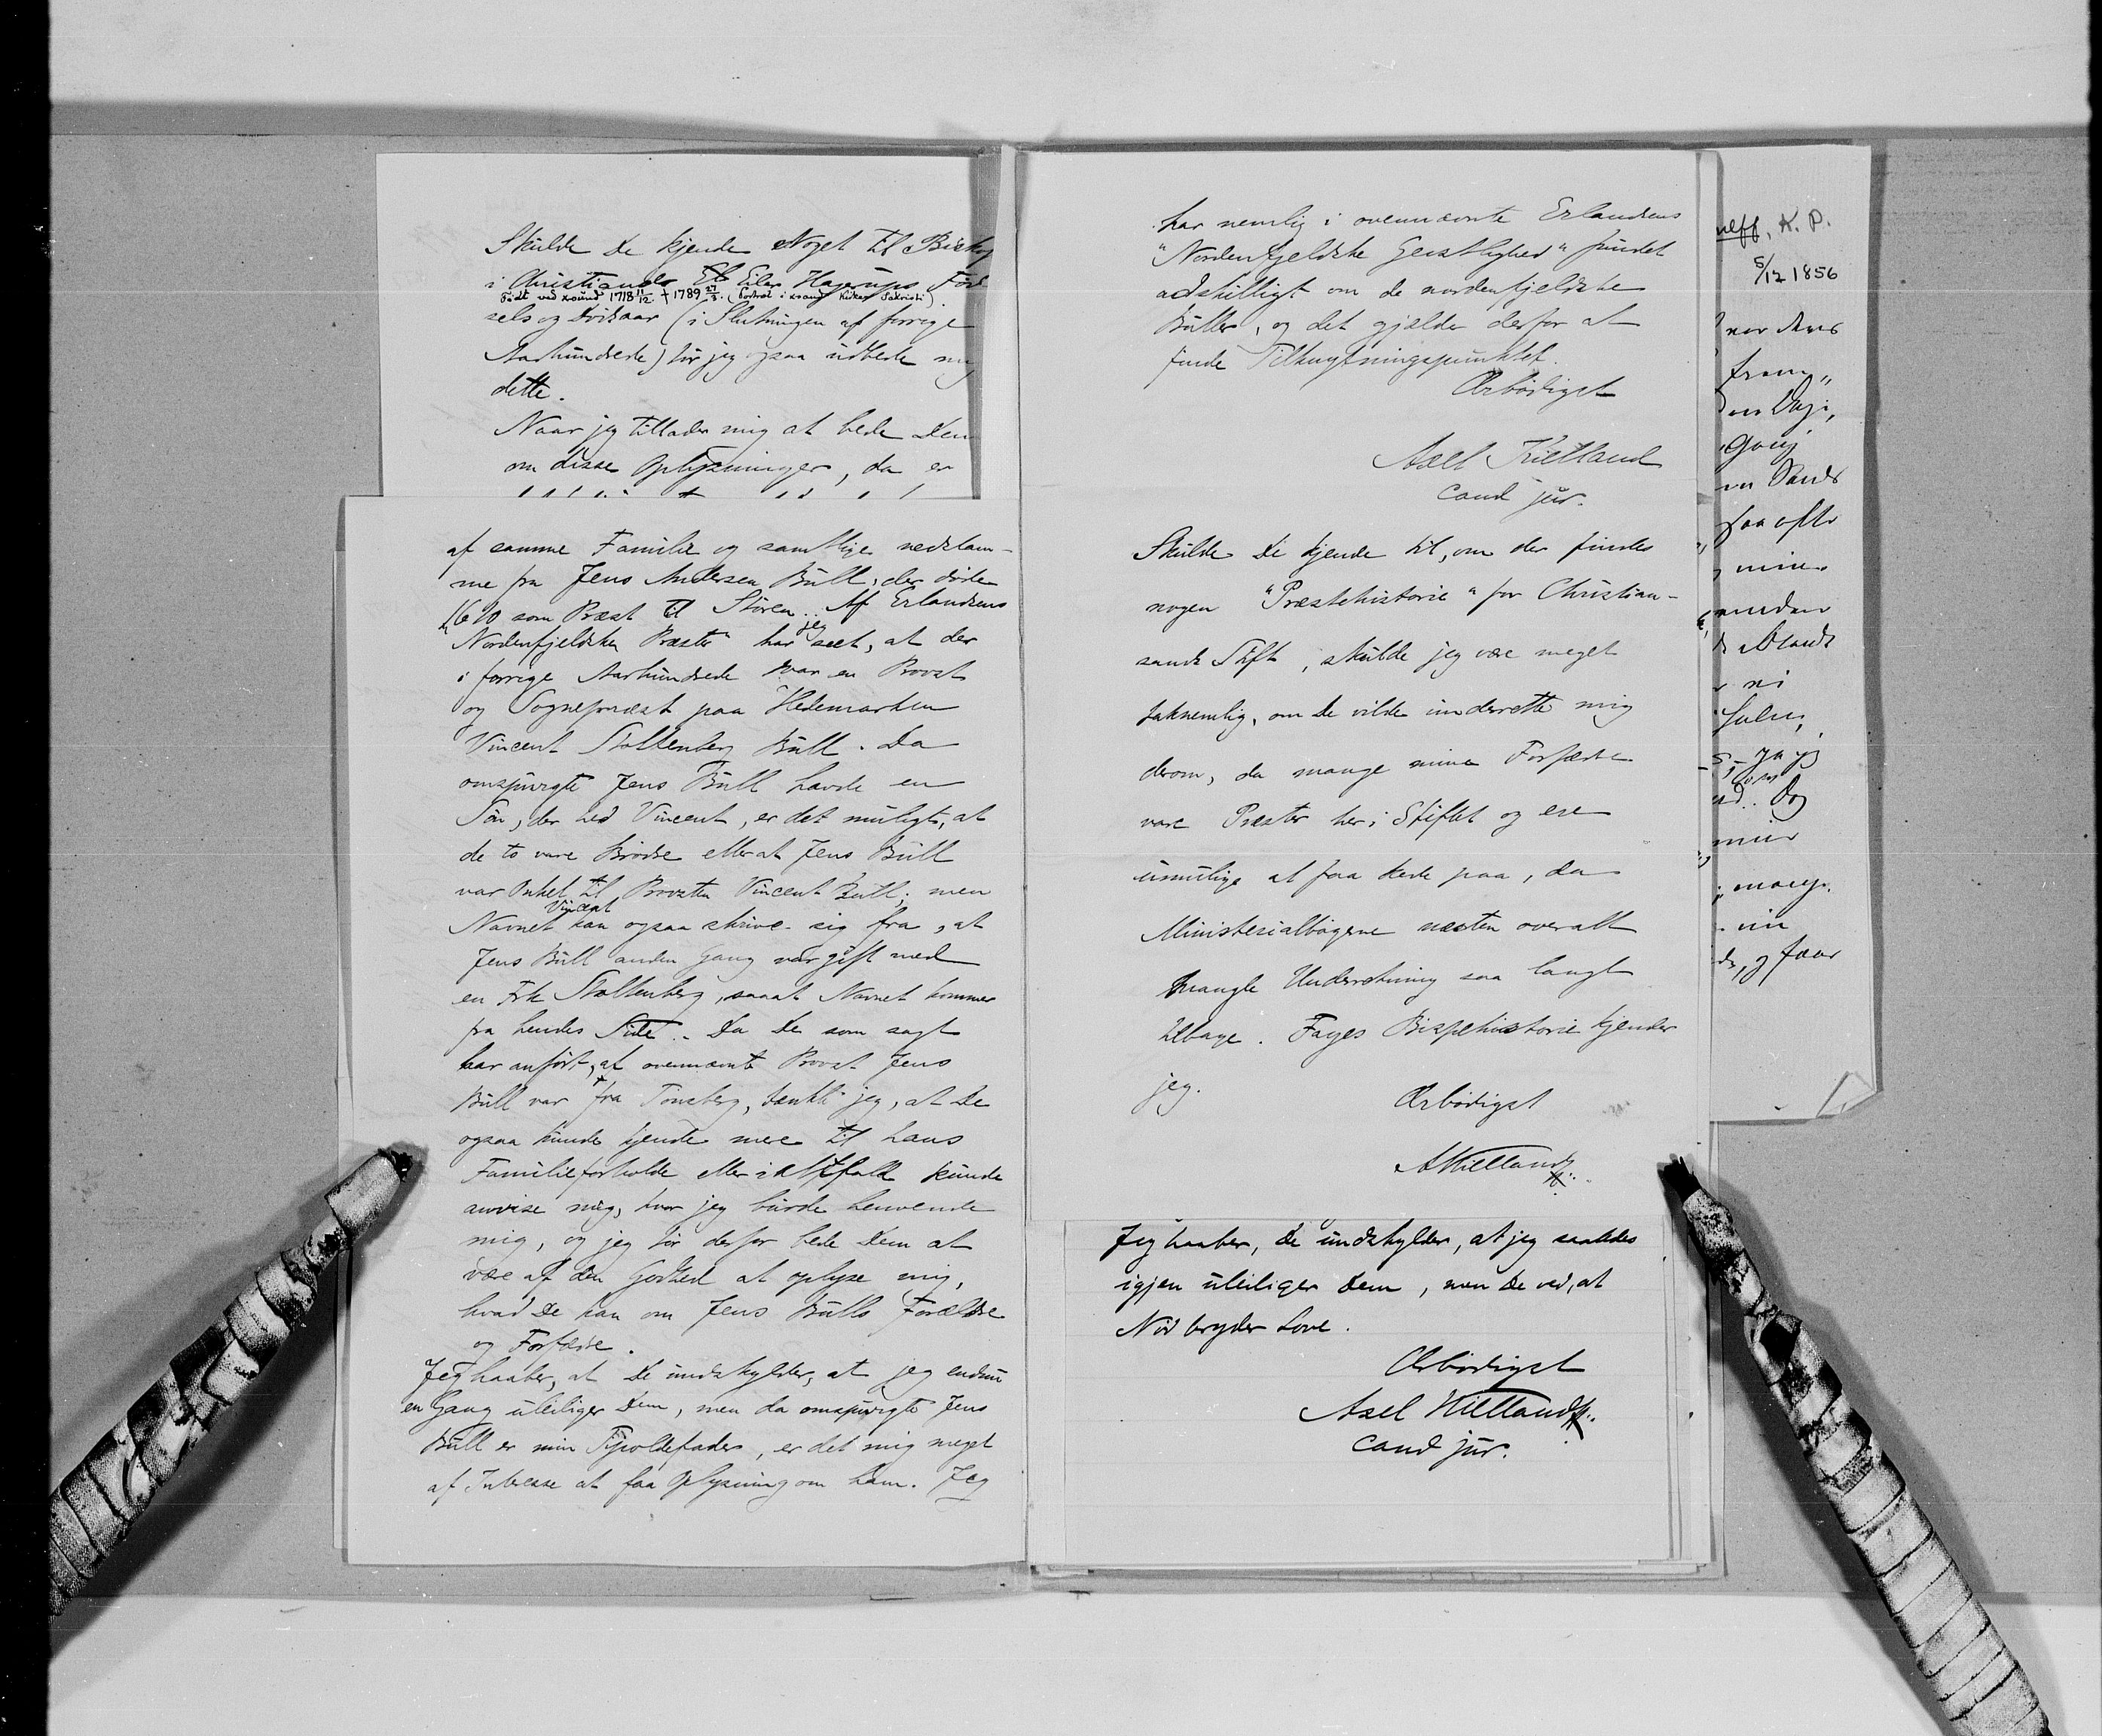 Skulde De kjende Noget til Biskop
i Christiands Eiler Hagerups Fød
Født ved xsund 1718 11/12 † 1789 27/5. (Portræt i xsands Kirkes Sakristi).
sels og Dødsaar (i Slutningen af forrige
Aarhundrede) tør jeg ogsaa udbede mig
dette.
Naar jeg tillader mig at bede Dem
om disse Oplysninger, da er
af samme Familie og samtlige nedstam-
me fra Jens Andersen Bull, der døde
1610 som Præst til Støren. Af Erlandsens
"Nordenfjeldske Præster" har jeg seet, at der
i forrige Aarhundrede var en Provst
og Sognepræst paa Hedemarken
Vincent Stoltenberg Bull. Da
omspurgte Jens Bull havde en
Søn, der hed Vincent, er det muligt, at
de to vare Brødre eller at Jens Bull
var Onkel til Provsten Vincent Bull; men
Navnet Vincent kan ogsaa skrive sig fra, at
Jens Bull anden Gang var gift med
en Frk Stoltenberg, saaat Navnet kommer
fra hendes Side. Da De som sagt
har anført, at ovennævnte Provst Jens
Bull var fra Tønsberg, tænkte jeg, at De
ogsaa kunde kjende mere til hans
Familieforholde eller i altfald kunde
anvise mig, hvor jeg burde henvende
mig, og jeg tør derfor bede Dem at
være af den Godhed at oplyse mig,
hvad De kan om Jens Bulls Forældre
og Forfædre.
Jeg haaber, at De undskylder, at jeg endnu
en Gang uleiliger Dem, men da omspurgte Jens
Bull er min Tipoldefader, er det mig meget
af Interesse at faa Oplysning om ham. Jeg
har nemlig i ovennævnte Erlandsens
"Nordenfjeldske Geistlighed" fundet
adskilligt om de nordenfjeldske
Buller, og det gjælder derfor at
finde Tilknytningspunktet.
Ærbødigst
Axel Kielland
cand jur.
Skulde De kjende til, om der findes
nogen "Præstehistorie" for Christian-
sands Stift, skulde jeg være meget
taknemlig, om De vilde underrette mig
derom, da mange mine Forfædre
vare Præster her i Stiftet og ere
umulige at faa Rede paa, da
Ministerialbøgerne næsten overalt
mangle Underretning saa langt
tilbage. Fayes Bispehistorie kjender
jeg.
Ærbødigst
AKielland
Jeg haaber, De undskylder, at jeg saaledes
igjen uleiliger Dem, men De ved, at
Nød bryder Love.
Ærbødigst
Axel Kielland
cand jur.
K. P.
5/12 1856